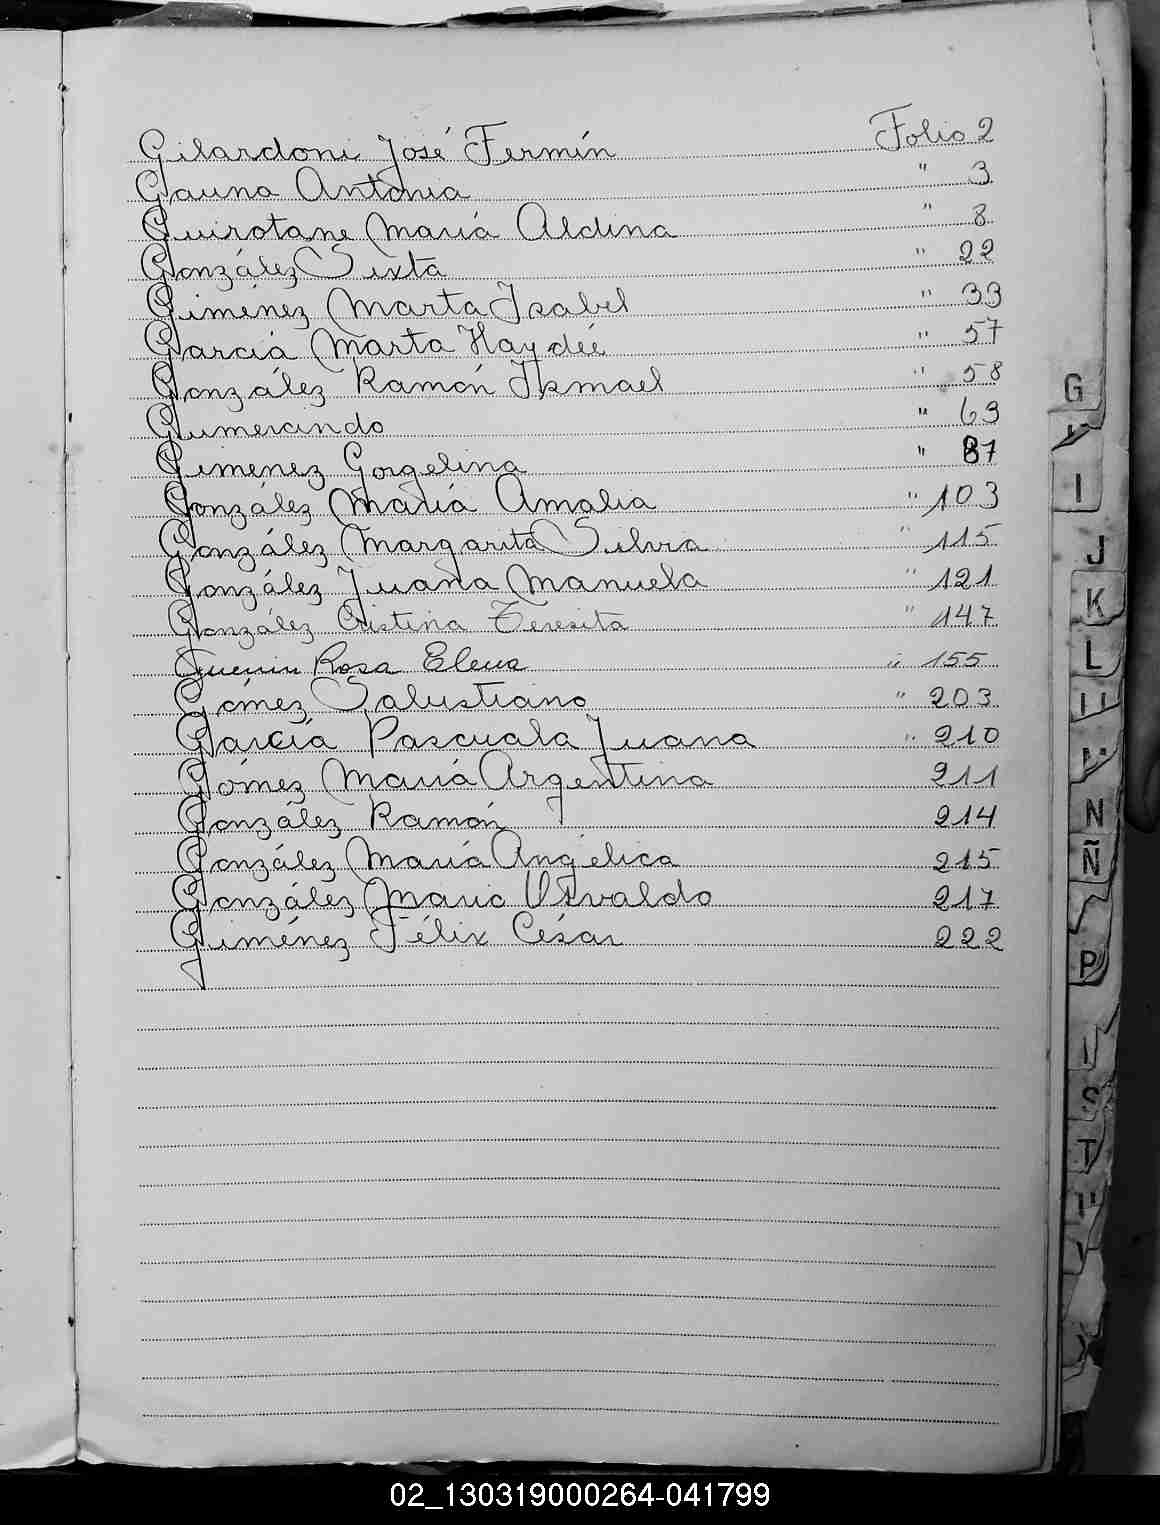 Gilardoni José Fermín Folio 2
Gauna Antonia " 3
Guirotane María Aldina " 8
González Sixta " 22
Giménez Marta Isabel " 33
García Marta Haydée " 57
González Ramón Ismael " 58
Gumersindo " 63
Gimenez Gorgelina " 87
González María Amalia " 103
González Margarita Silvia " 115
González Juana Manuela " 121
González Cristina Teresita " 147
Guenin Rosa Elena " 155
Gómez Salustiano " 203
García Pascuala Juana " 210
Gómez María Argentina 211
González Ramón 214
González María Angélica 215
González Mario Osvaldo 217
Giménez Félix César 222
G
I
J
K
L
N
Ñ
P
S
T
02_130319000264-041799